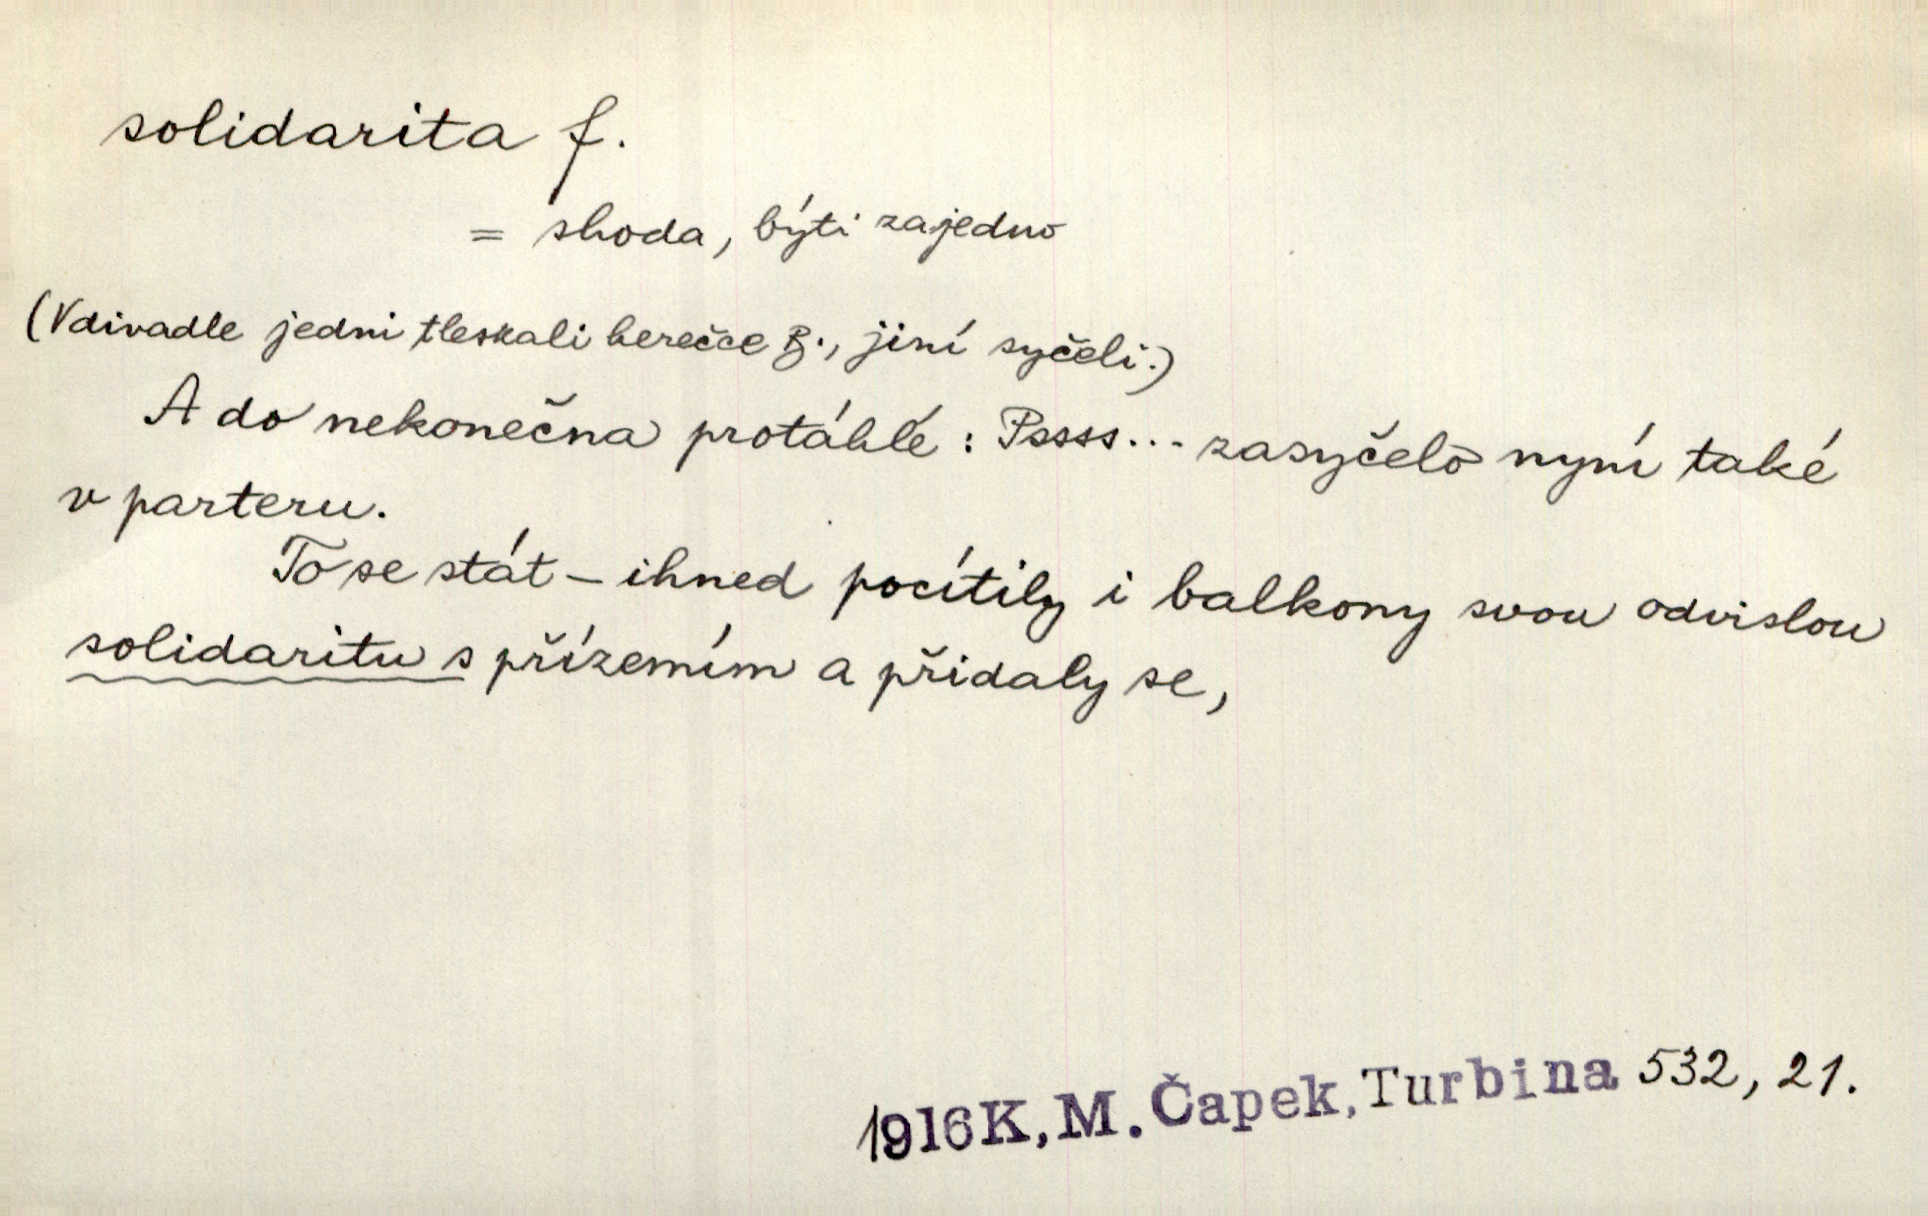 solidarita f.
= shoda, býti zajedno
(V divadle jedni tleskali herečce B., jiní syčeli.)
A do nekonečna protáhlé: Pssss... zasyčelo nyní také
v parteru.
To se stát – ihned pocítily i balkony svou odvislou
solidaritu s přízemím a přidaly se,
1916 K. M. Čapek, Turbina 532, 21.